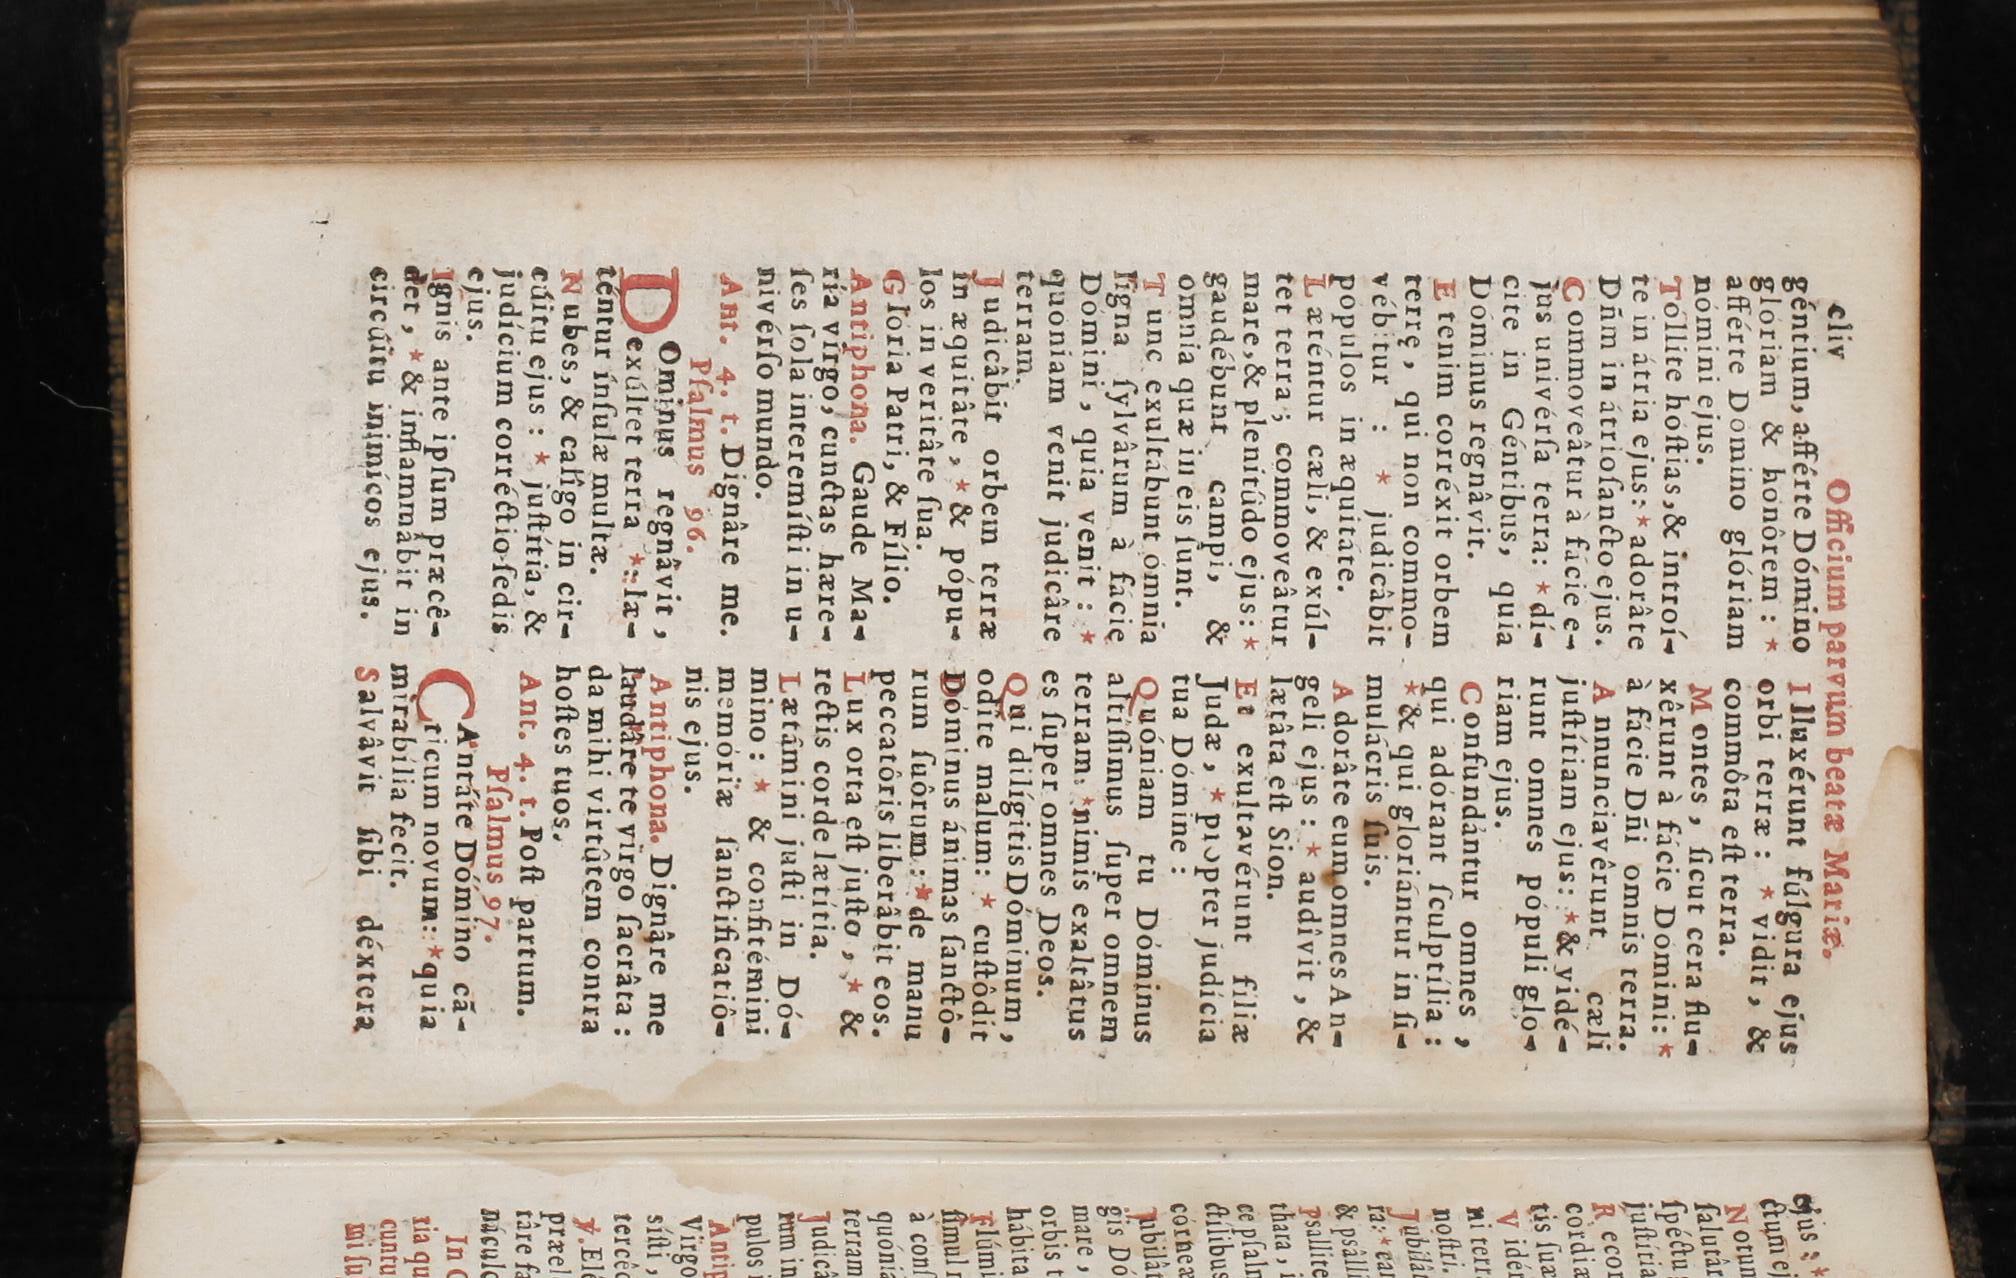 cliv
Officium parvum beatæ Mariæ.
géntium, afférte Dómino
glóriam & honôrem : *
afférte Dómino glóriam
nómini ejus.
Tóllite hóstias, & introí-
te in átria ejus: * adorâte
Dñm in átrio sancto ejus.
Commoveâtur à fácie e-
jus univérsa terra: * dí-
cite in Géntibus, quia
Dóminus regnâvit.
Etenim corréxit orbem
terrę, qui non commo-
vébitur : * judicâbit
pópulos in æquitáte.
Læténtur cæli, & exúl-
tet terra; commoveâtur
mare, & plenitúdo ejus: *
gaudébunt campi, &
omnia quæ in eis sunt.
Tunc exultábunt ómnia
ligna sylvârum à fácie
Dómini, quia venit : *
quóniam venit judicâre
terram.
Judicâbit orbem terræ
in æquitâte, * & pópu-
los in veritâte sua.
Glória Patri, & Fílio.
Antiphona. Gaude Ma-
ría virgo, cunctas hære-
ses sola interemísti in u-
nivérso mundo.
Ant. 4. t. Dignâre me.
Psalmus 96.
DOminus regnâvit,
exúltet terra *: læ-
téntur ínsulæ multæ.
Nubes, & calígo in cir-
cúitu ejus : * justítia, &
judícium corréctio sedis
ejus.
Ignis ante ipsum præcê-
det, * & inflammâbit in
circúitu inimícos ejus.
Illuxérunt fúlgura ejus
orbi terræ : * vidit, &
commôta est terra.
Montes, sicut cera flu-
xêrunt à fácie Dómini: *
à fácie Dñi omnis terra.
Annunciavêrunt cæli
justítiam ejus: * & vidé-
runt omnes pópuli glo-
riam ejus.
Confundántur omnes,
qui adórant sculptília :
* & qui gloriántur in si-
mulácris suis.
Adorâte eum omnes An-
geli ejus : * audîvit, &
lætâta est Sion.
Et exultavérunt filiæ
Judæ, * propter judícia
tua Dómine :
Quóniam tu Dóminus
altíssimus super omnem
terram: * nimis exaltâtus
es super omnes Deos.
Qui dilígitis Dóminum,
odîte malum: * custôdit
Dóminus ánimas sanctô-
rum suôrum: * de manu
peccatôris liberâbit eos.
Lux orta est justo, * &
rectis corde lætítia.
Lætâmini justi in Dó-
mino : * & confitémini
memóriæ sanctificatiô-
nis ejus.
Antiphona. Dignâre me
laudâre te virgo sacrâta :
da mihi virtûtem contra
hostes tuos.
Ant. 4. t. Post partum.
Psalmus 97.
CAntáte Dómino cã-
ticum novum: * quia
mirabília fecit.
Salvâvit sibi déxtera
ejus : *
ctum ej
Notum
salutár
spéctu
justíti
Recor
cordiæ
tis suæ
Vidér
ni terr
nostri.
Jubilát
ra: * can
& psálli
Psallite
thara, i
ce psalm
ctilibus
córneæ
Jubilát
gis Dó
mare,
orbis t
hábita
Flúmi
simul
à cons
quónia
terram
Judicâ
rum in
pulos i
Antip
Virgo
sísti,
tercêd
℣. Ele
præel
târe fa
náculo
In C
ria qu
cuntu
mi su